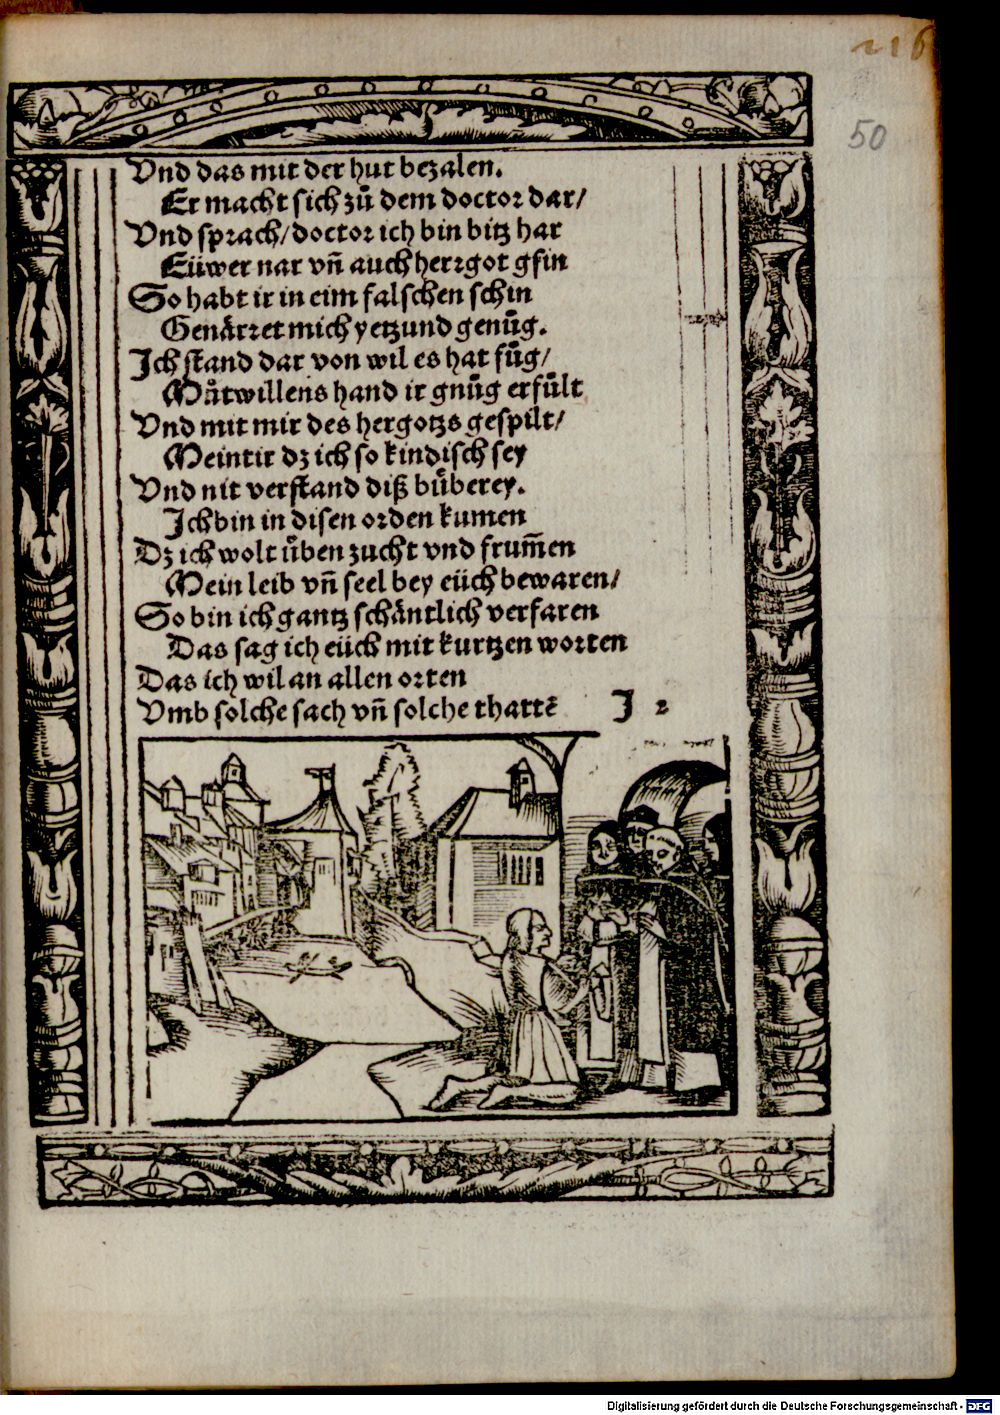 216
50
Vnd das mit der hut bezalen.
Er macht sich zů dem doctor dar/
Vnd sprach/ doctor ich bin bitz har
Eüwer nar vñ auch herrgot gsin
So habt ir in eim falschen schin
Genärret mich yetzund genůg.
Ich stand dar von wil es hat fůg/
Můtwillens hand ir gnůg erfült
Vnd mit mir des hergotzs gespilt/
Meintir dz ich so kindisch sey
Vnd nit verstand diß bůberey.
Ich bin in disen orden kumen
Dz ich wolt üben zucht vnd frum̃en
Mein leib vñ seel bey eüch bewaren/
So bin ich gantz schäntlich verfaren
Das sag ich eüch mit kurtzen worten
Das ich wil an allen orten
Vmb solche sach vñ solche thattẽ
J 2
Digitalisierung gefördert durch die Deutsche Forschungsgemeinschaft - DFG